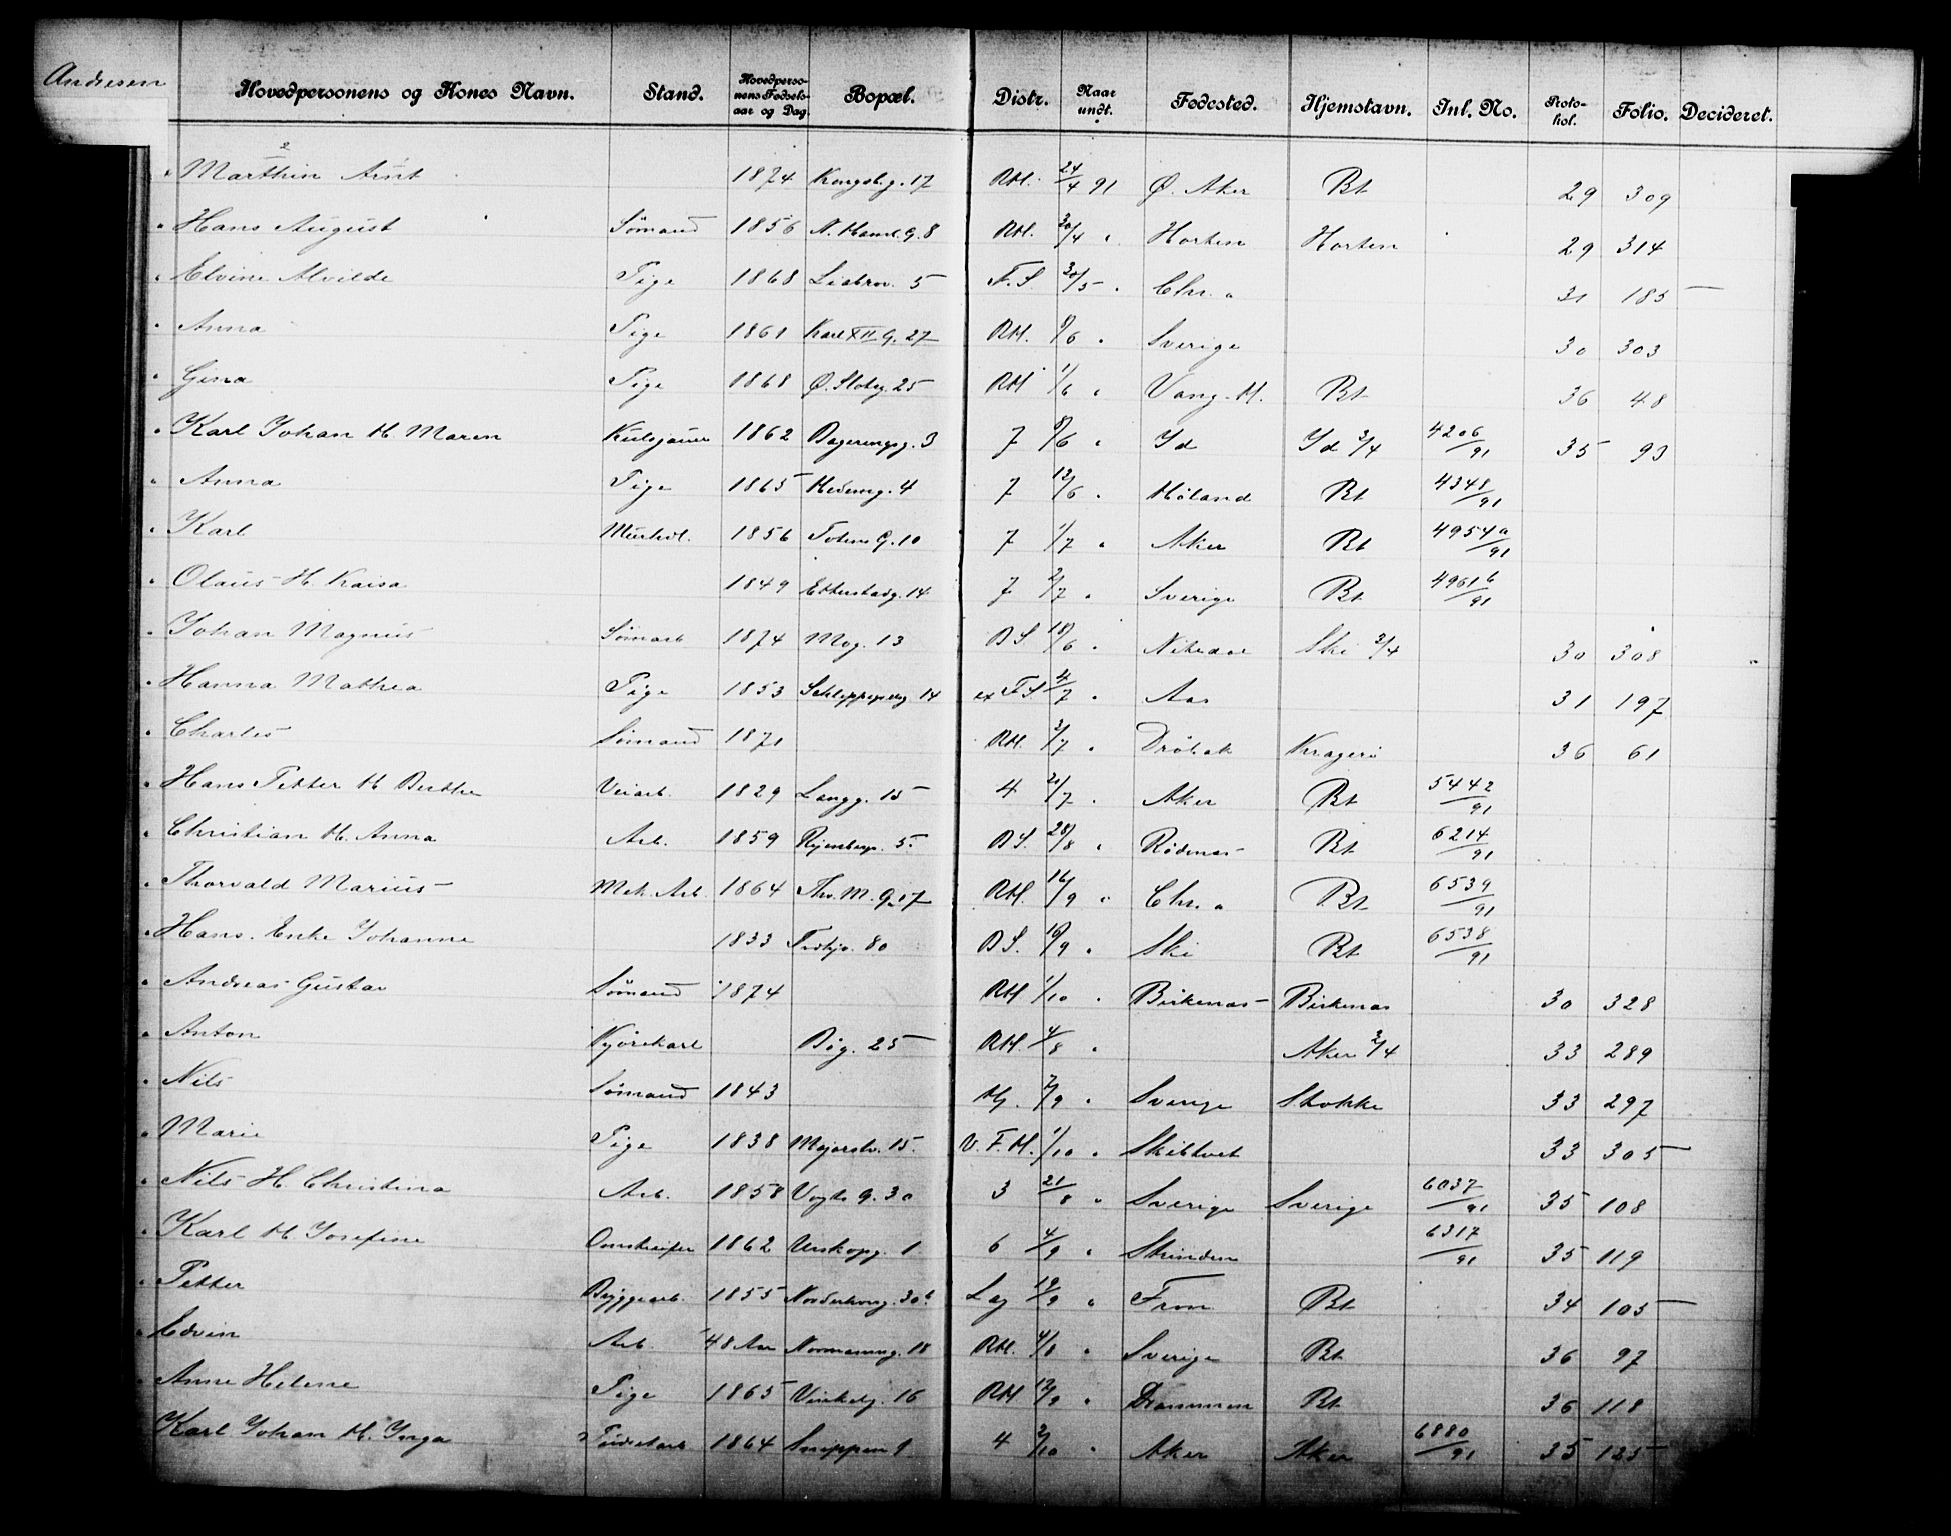 Andresen
Hovedpersonens og Kones Navn. Stand. Hovedpersonens Fødselsaar og Dag. Bopæl. Distr. Naar undt. Fødested. Hjemstavn. Inl. No. Protokol. Folio. Decideret.
" Marthin Arnt 1874 Kongsb.g. 17 RH. 24/4 91 Ø. Aker Bt 29 309
" Hans August Sømand 1856 N. Haml. G. 8 RH. 30/4 " Horten Horten 29 314
" Elvine Alvilde Pige 1868 5 F.S 30/5 " Chr.a 31 185
" Anna Pige 1861 Karl XII G. 27 RH. 8/6 " Sverige 30 303
" Gina Pige 1868 Ø. Slotsg. 25 RH 1/6 " Vang. H. Bt 36 48
" Karl Johan H. Maren 1862 3 7 8/6 " Id Id 3/4 4206/91 35 93
" Anna Pige 1865 Hedemg. 4 7 12/6 " Høland Bt 4348/91
" Karl Murhdl. 1856 Tøiens G. 10 7 1/7 " Aker Bt 4954a/91
" Olaus H. Kaisa 1849 Etterstadg. 14 7 2/7 " Sverige Bt 4961b/91
" Johan Magnus Sømand 1874 Mog. 13 BS. 18/6 " Nitedal Ski 3/4 30 308
" Hanna Mathea Pige 1853 Schleppegrellsg 14 ex F.S. 4/7 " Aas 31 197
" Charles Sømand 1871 RH. 3/7 " Drøbak Kragerø 36 61
" Hans Petter H Berthe Veiarb. 1829 Langg. 15 4 21/7 " Aker Bt 5442/91
" Christian H. Anna Arb. 1859 5 BS. 28/8 " Rødenes Bt 6214/91
" Thorvald Marius Mek. Arb. 1864 Thv. M. G. 17 RH. 16/9 " Chr.a Bt 6539/91
" Hans. Enke Johanne 1833 Trskjv. 80 BS. 19/9 " Ski Bt 6538/91
" Andreas Gustav Sømand 1874 RH 1/10 " Birkenæs Birkenæs 30 328
" Anton Kjørekarl Big. 25 RH. 4/8 " Aker 3/4 33 289
" Nils Sømand 1843 Hj. 7/9 " Sverige Stokke 33 297
" Marie Pige 1838 Majorstv. 15 V.F.H. 1/10 " Skibtvet 33 305
" Nils H. Christina Arb. 1858 Vogts G. 30 3 21/8 " Sverige Sverige 6037/91 35 108
" Karl H Josefine 1862 1 6 4/9 " 6317/91 35 119
" Petter Byggearb. 1855 30b Lag 19/9 " Fron Bt 34 105
" Edvin Arb. 48 Aar Normannsg. 18 RH. 4/8 " Sverige Bt 36 97
" Anne Helene Pige 1865 Vinkelg. 16 RH 12/9 " Drammen Bt 36 118
Karl Johan H. Inga 1864 4 2/10 " Aker Aker 6880/91 35 125